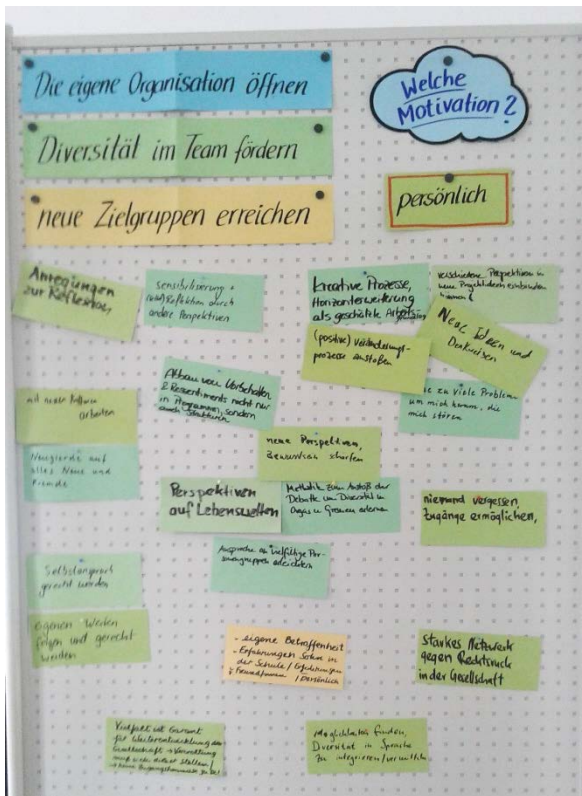 Die eigene Organisation öffnen
Diversität im Team fördern
neue Zielgruppen erreichen
Welche
Motivation?
persönlich
Anregungen
zur Reflexion
Sensibilisierung +
Reflektion durch
andere Perspektiven
kreative Prozesse,
Horizonterweiterung
als geschätzte
verschiedene Perspektiven in
neue Projektideen einbinden
können
Neue Ideen und
Denkweisen
(positive) Veränderungs-
prozesse anstoßen
Abbau von Vorurteilen
& Ressentiments nicht nur
in Programmen, sondern
auch Strukturen
zu viele Probleme
um mich herum, die
mich stören
mit neuen
arbeiten
Neugierde auf
alles Neue und
Fremde
neue Perspektiven,
Bewusstsein schärfen
Perspektiven
auf Lebenswelten
Methodik zum Anstoß der
Debatte um Diversität in
Orgas u Gremien erlernen
niemand vergessen,
Zugänge ermöglichen,
Ansprache an vielfältige Per-
sonengruppen erleichtern
Selbstanspruch
gerecht werden
eigenen Werten
folgen und gerecht
werden
- eigene Betroffenheit
- Erfahrungen Sohn in
der Schule / Erfahrungen
/ Persönlich
starkes Netzwerk
gegen Rechtsruck
in der Gesellschaft
Vielfalt ist Garant
für Weiterentwicklung der
Gesellschaft → Verwaltung
muss sich dieser stellen /
Möglichkeiten finden,
Diversität in Sprache
zu integrieren / vermitteln